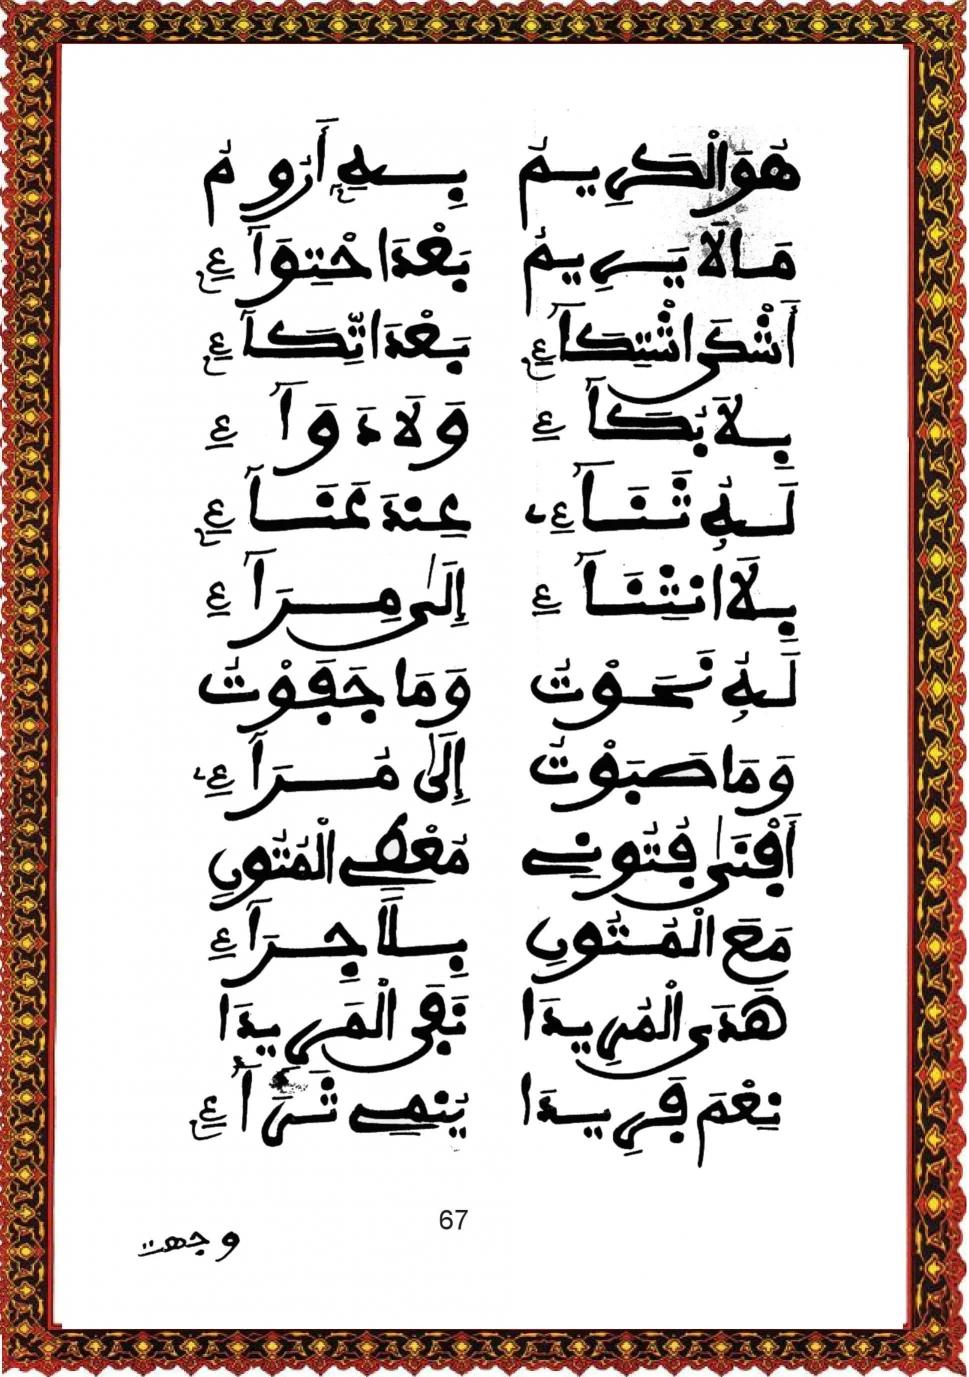 هُوَ الْكَرِيمُ بِهِ أَرُومُ
مَا لَا يَرِيمُ بَعْدَ احْتِوَآءِ
أَشْكَى اشْتِكَآءِ بَعْدَ اتِّكَآءِ
بِلَا بُكَآءِ وَلَا دَوَآءِ
لَهُ ثَنَآءِ عِنْدَ عَنَآءِ
بِلَا انْثِنَآءِ إِلَى مِرَآءِ
لَهُ نَحَوْتُ وَمَا جَفَوْتُ
وَمَا صَبَوْتُ إِلَى مُرَآءِ
أَفْنَى فُتُونِي مُعْطِي الْمُتُونِ
مَعَ الْمُتُونِ بِلَا جِرَآءِ
هَدَى الْمُرِيدَا نَفَى الْمَرِيدَا
نِعْمَ فَرِيدَا يَنْمِي ثَرَآءِ
67
وجهت